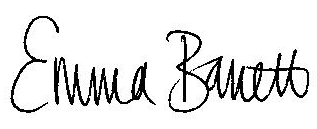 Emma Barrett